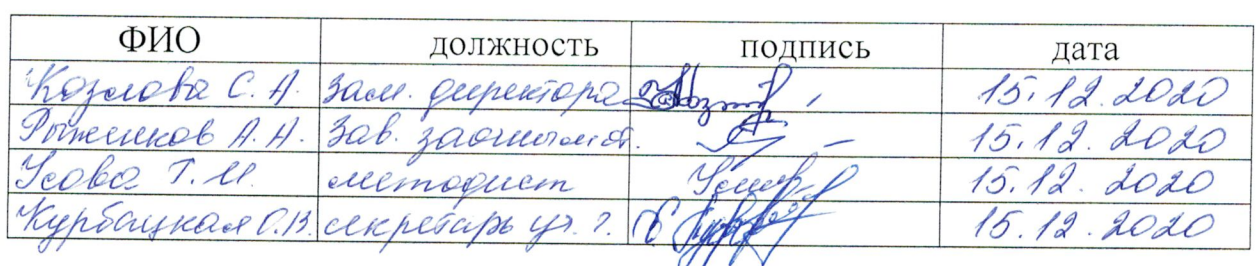 ФИО должность подпись дата
Козлова С. А. Зам. директора 15.12.2020
Рыженков А. А. Зав. заочным от. 15.12.2020
Усова Т. М. методист 15.12.2020
Курбацкая О.В. секретарь уч. г. 15.12.2020